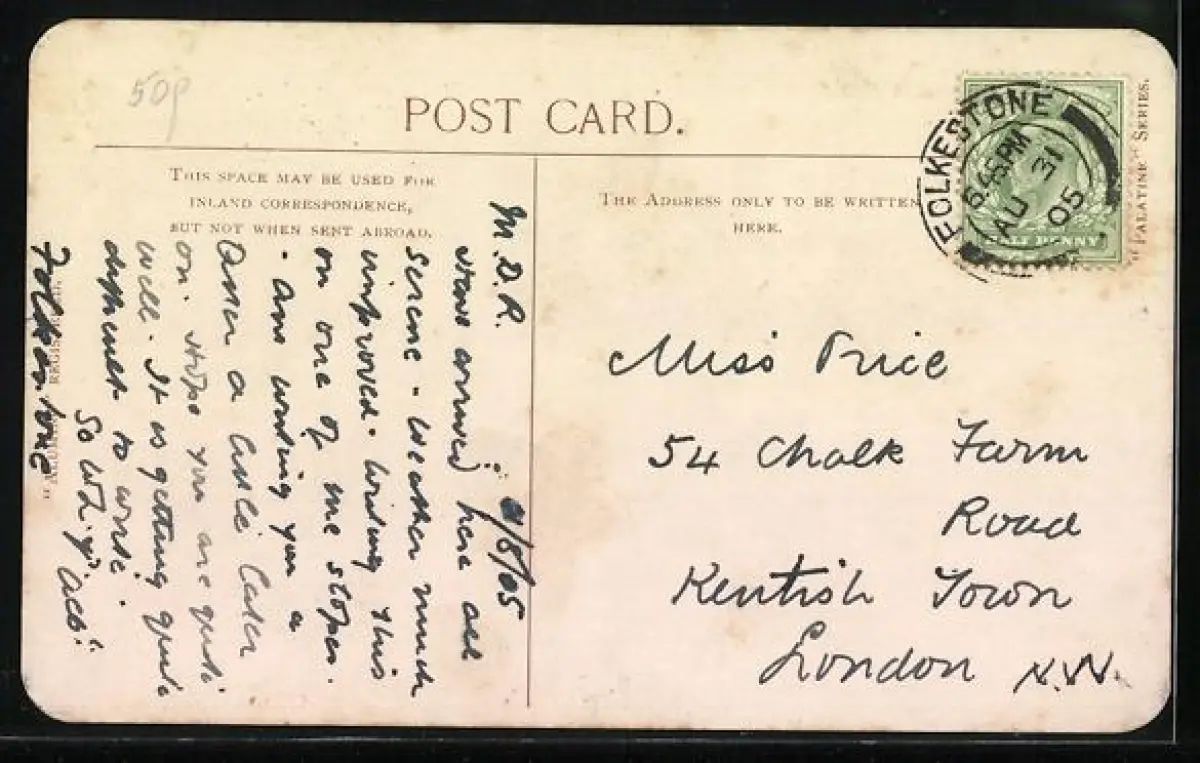 50p
POST CARD.
THIS SPACE MAY BE USED FOR
INLAND CORRESPONDENCE,
BUT NOT WHEN SENT ABROAD.
THE ADDRESS ONLY TO BE WRITTEN
HERE.
FOLKESTONE
6 45 PM
AU 31
05
HALF PENNY
"PALATINE" SERIES.
Miss Price
54 Chalk Farm
Road
Kentish Town
London N.W.
Folkestone
/8/05
M.D.R.
Have arrived here all
serene. Weather much
improved. Writing this
on one of the slopes.
Am writing you a
a little later
on. Hope you are quite
well. It is getting quite
difficult to write.
So